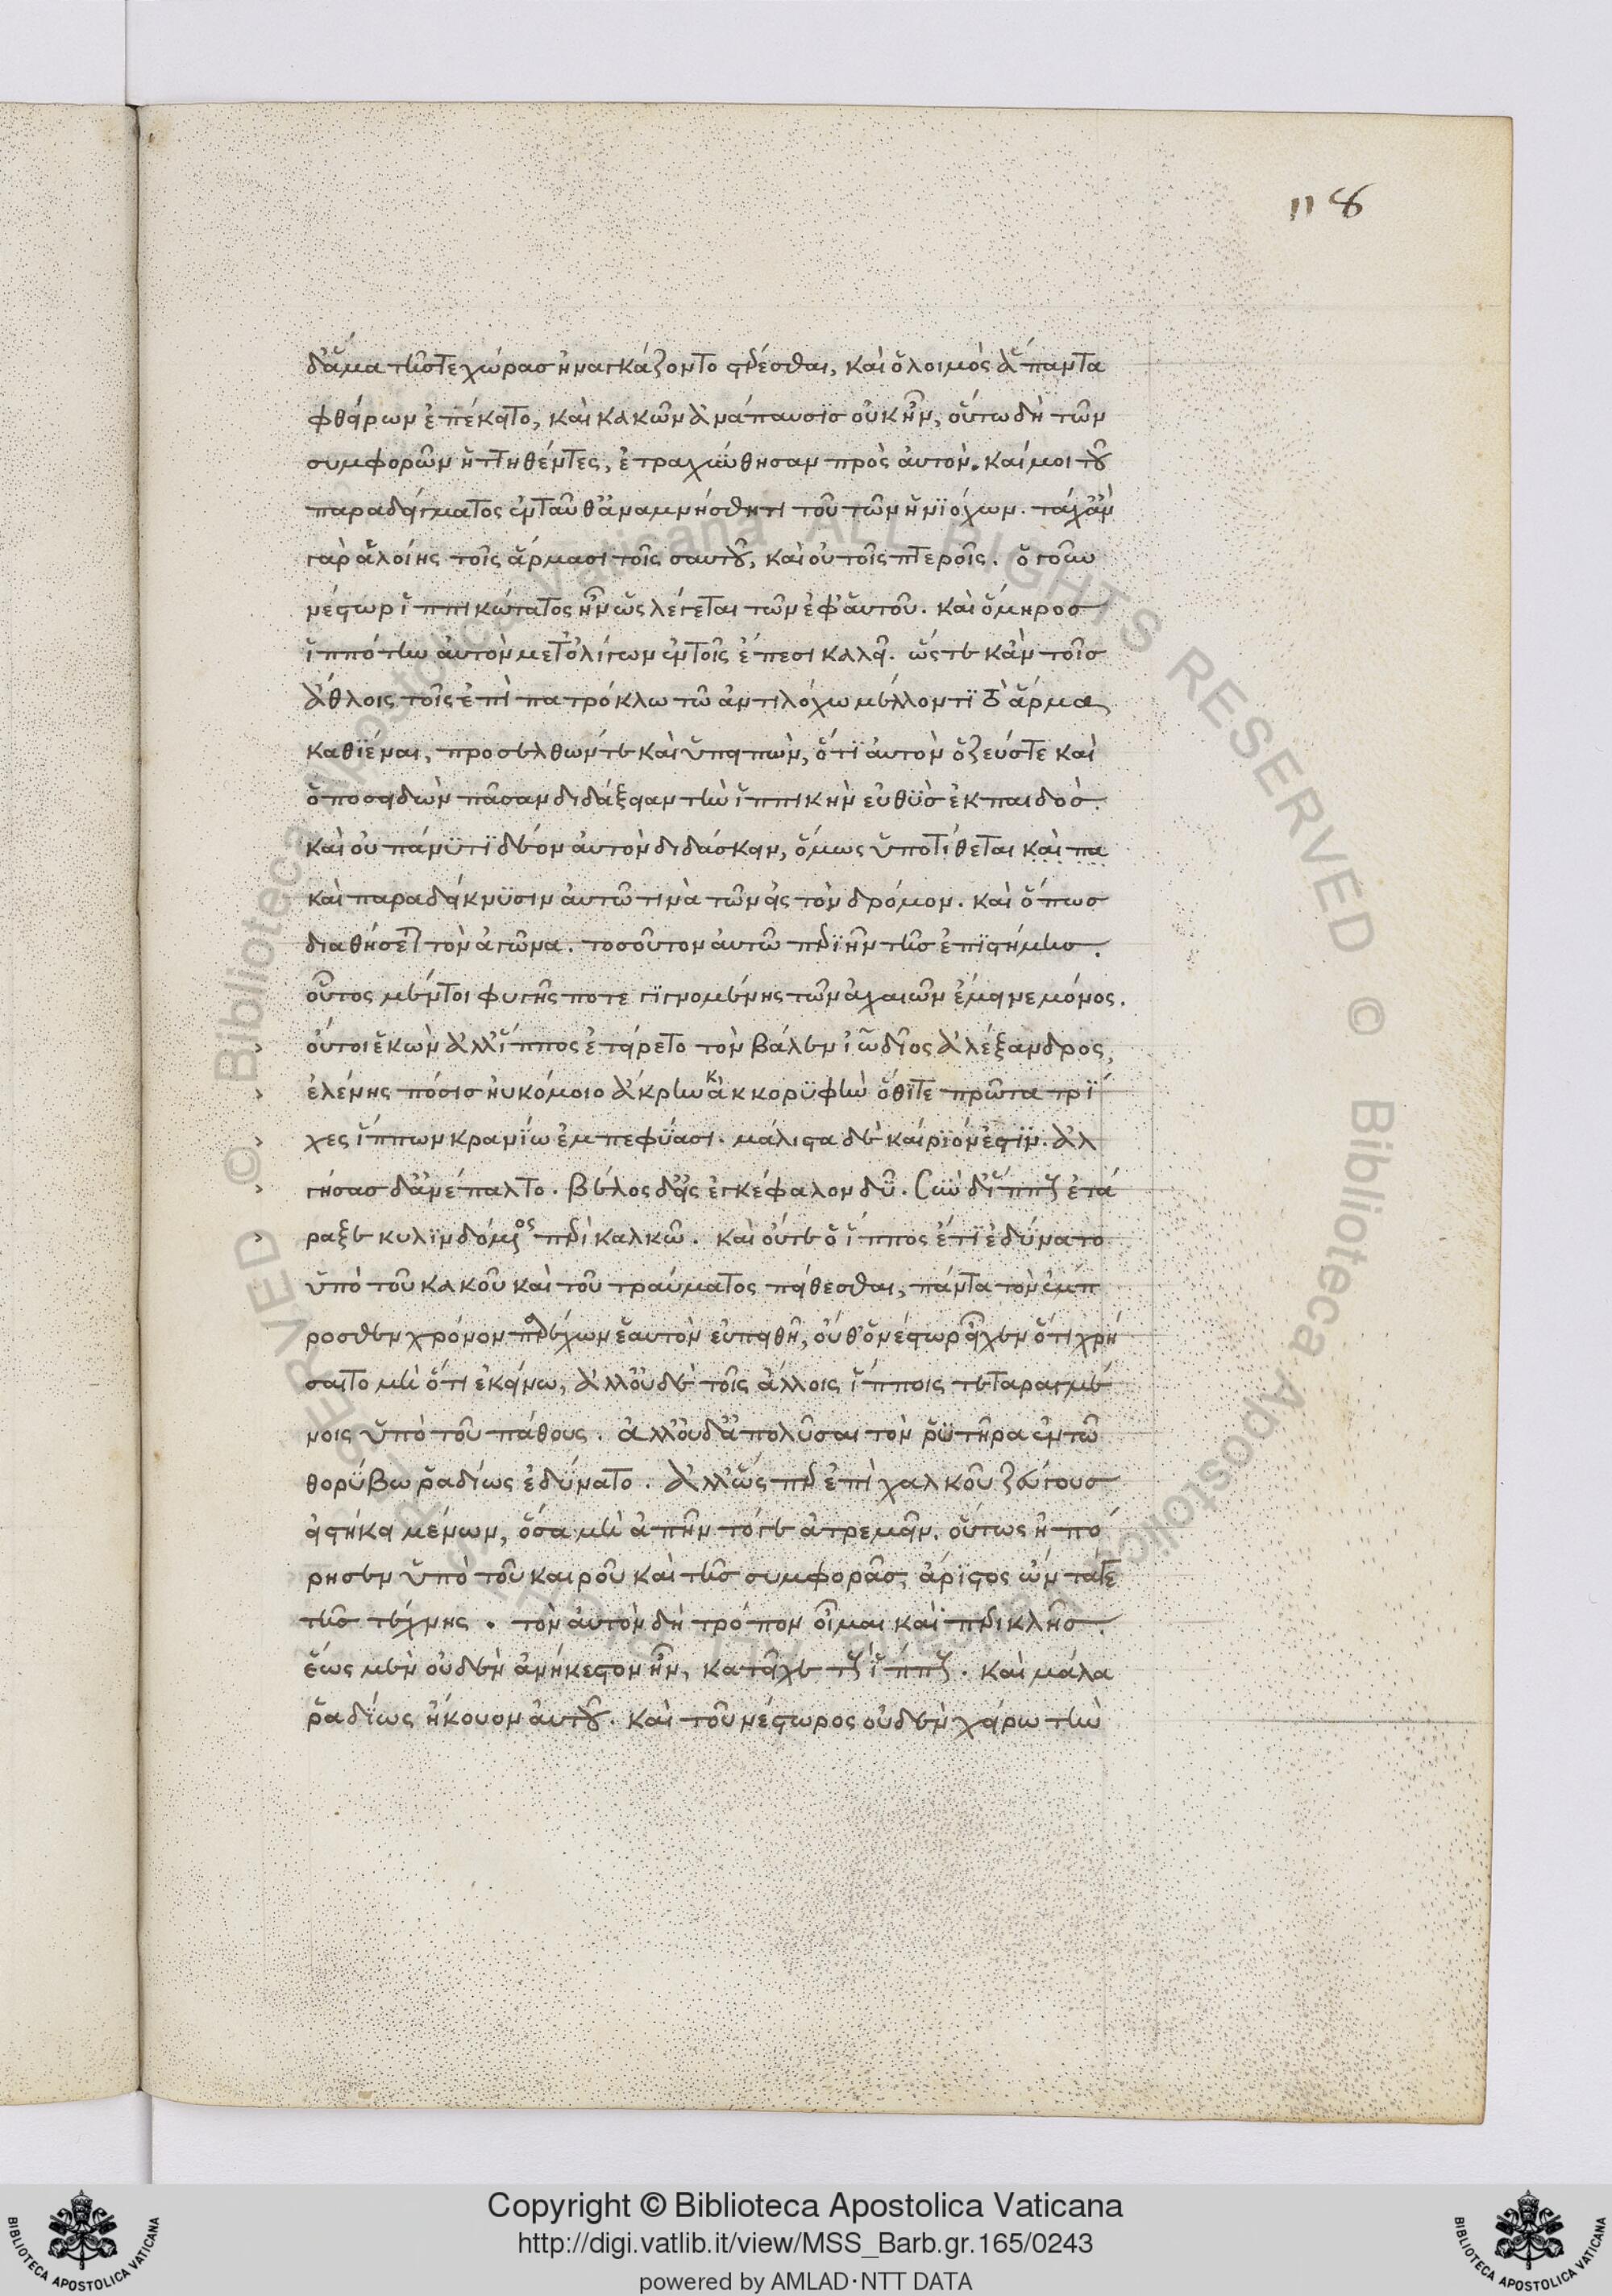 118
δ' ἅμα τῆς τε χώρας ἠναγκάζοντο στέρεσθαι, καὶ ὁ λοιμὸς ἅπαντα
φθείρων ἐπέκειτο, καὶ κακῶν ἀνάπαυσις οὐκ ἦν, οὕτω δὴ τῶν
συμφορῶν ἡττηθέντες, ἐτραχύνθησαν πρὸς αὐτόν. καί μοι τοῦ
παραδείγματος ἐνταῦθ' ἀναμνήσθητι τοῦ τῶν ἡνιόχων. τάχ' ἂν
γὰρ ἁλοίης τοῖς ἅρμασι τοῖς σαυτοῦ, καὶ οὐ τοῖς πτεροῖς. ὁ γοῦν
νέστωρ ἱππικώτατος ἦν ὡς λέγεται τῶν ἐφ' ἑαυτοῦ. καὶ ὅμηρος
ἱππότην αὐτὸν μετ' ὀλίγων ἐν τοῖς ἔπεσι καλεῖ. ὥστε κἀν τοῖς
ἄθλοις τοῖς ἐπὶ πατρόκλω τῶ ἀντιλόχω μέλλοντι τὸ ἅρμα
καθιέναι, προσελθών τε καὶ ὑπειπὼν, ὅτι αὐτὸν ὁ ζεύς τε καὶ
ὁ ποσειδῶν πᾶσαν διδάξειαν τὴν ἱππικὴν εὐθὺς ἐκ παιδός.
καὶ οὐ πάνυ τι δέον αὐτὸν διδάσκειν, ὅμως ὑποτίθεται καὶ πα
καὶ παραδείκνυσιν αὐτῶ τινὰ τῶν εἰς τὸν δρόμον. καὶ ὅπως
διαθήσεται τὸν ἀγῶνα. τοσοῦτον αὐτῶ περιῆν τῆς ἐπιστήμης.
οὗτος μέντοι φυγῆς ποτε γιγνομένης τῶν ἀχαιῶν ἔμεινε μόνος.
οὔτοι ἑκὼν ἀλλ' ἵππος ἐτείρετο τὸν βάλεν ἰῶ δῖος ἀλέξανδρος,
ἑλένης πόσις ἠυκόμοιο ἄκρην κὰκ κορυφὴν ὅθι τε πρῶται τρί
χες ἵππων κρανίω ἐμπεφύασι. μάλιστα δὲ καίριόν ἐστιν. ἀλ
γήσας δ' ἀνέπαλτο. βέλος δ' εἰς ἐγκέφαλον δῦ. σὺν δ' ἵππους ἐτά
ραξε κυλινδόμενος περὶ χαλκῶ. καὶ οὔτε ὁ ἵππος ἔτι ἐδύνατο
ὑπὸ τοῦ κακοῦ καὶ τοῦ τραύματος πείθεσθαι, πάντα τὸν ἔμπ
ροσθεν χρόνον παρέχων ἑαυτὸν εὐπειθῆ, οὔθ' ὁ νέστωρ εἶχεν ὅτι χρή
σαιτο μὴ ὅτι ἐκείνω, ἀλλ' οὐδὲ τοῖς ἄλλοις ἵπποις τεταραγμέ
νοις ὑπὸ τοῦ πάθους. ἀλλ' οὐδ' ἀπολῦσαι τὸν ῥυτῆρα ἐν τῶ
θορύβω ῥαδίως ἐδύνατο. ἀλλ' ὥσπερ ἐπὶ χαλκοῦ ζεύγους
εἱστήκει μένων, ὅσα μὴ ἀπῆν τό γε ἀτρεμεῖν. οὕτως ἠπό
ρησεν ὑπὸ τοῦ καιροῦ καὶ τῆς συμφορᾶς, ἄριστος ὢν τά γε
τῆς τέχνης. τὸν αὐτὸν δὴ τρόπον οἶμαι καὶ περικλῆς.
ἕως μὲν οὐδὲν ἀνήκεστον ἦν, κατεῖχε τοὺς ἵππους. καὶ μάλα
ῥαδίως ἤκουον αὐτοῦ. καὶ τοῦ νέστωρος οὐδὲν χείρω τὴν
Copyright © Biblioteca Apostolica Vaticana
http://digi.vatlib.it/view/MSS_Barb.gr.165/0243
powered by AMLAD·NTT DATA